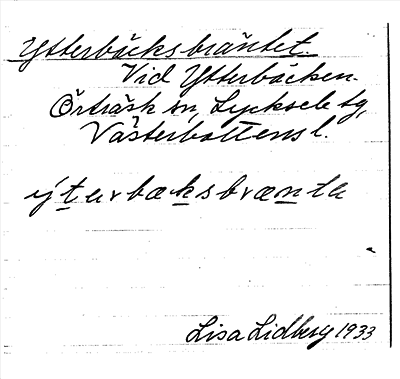 Ytterbäcksbräntet.
Vid Ytterbäcken.
Örträsk sn, Lycksele tg,
Västerbottens l.
ýtərbæksbræntə
Lisa Lidberg 1933